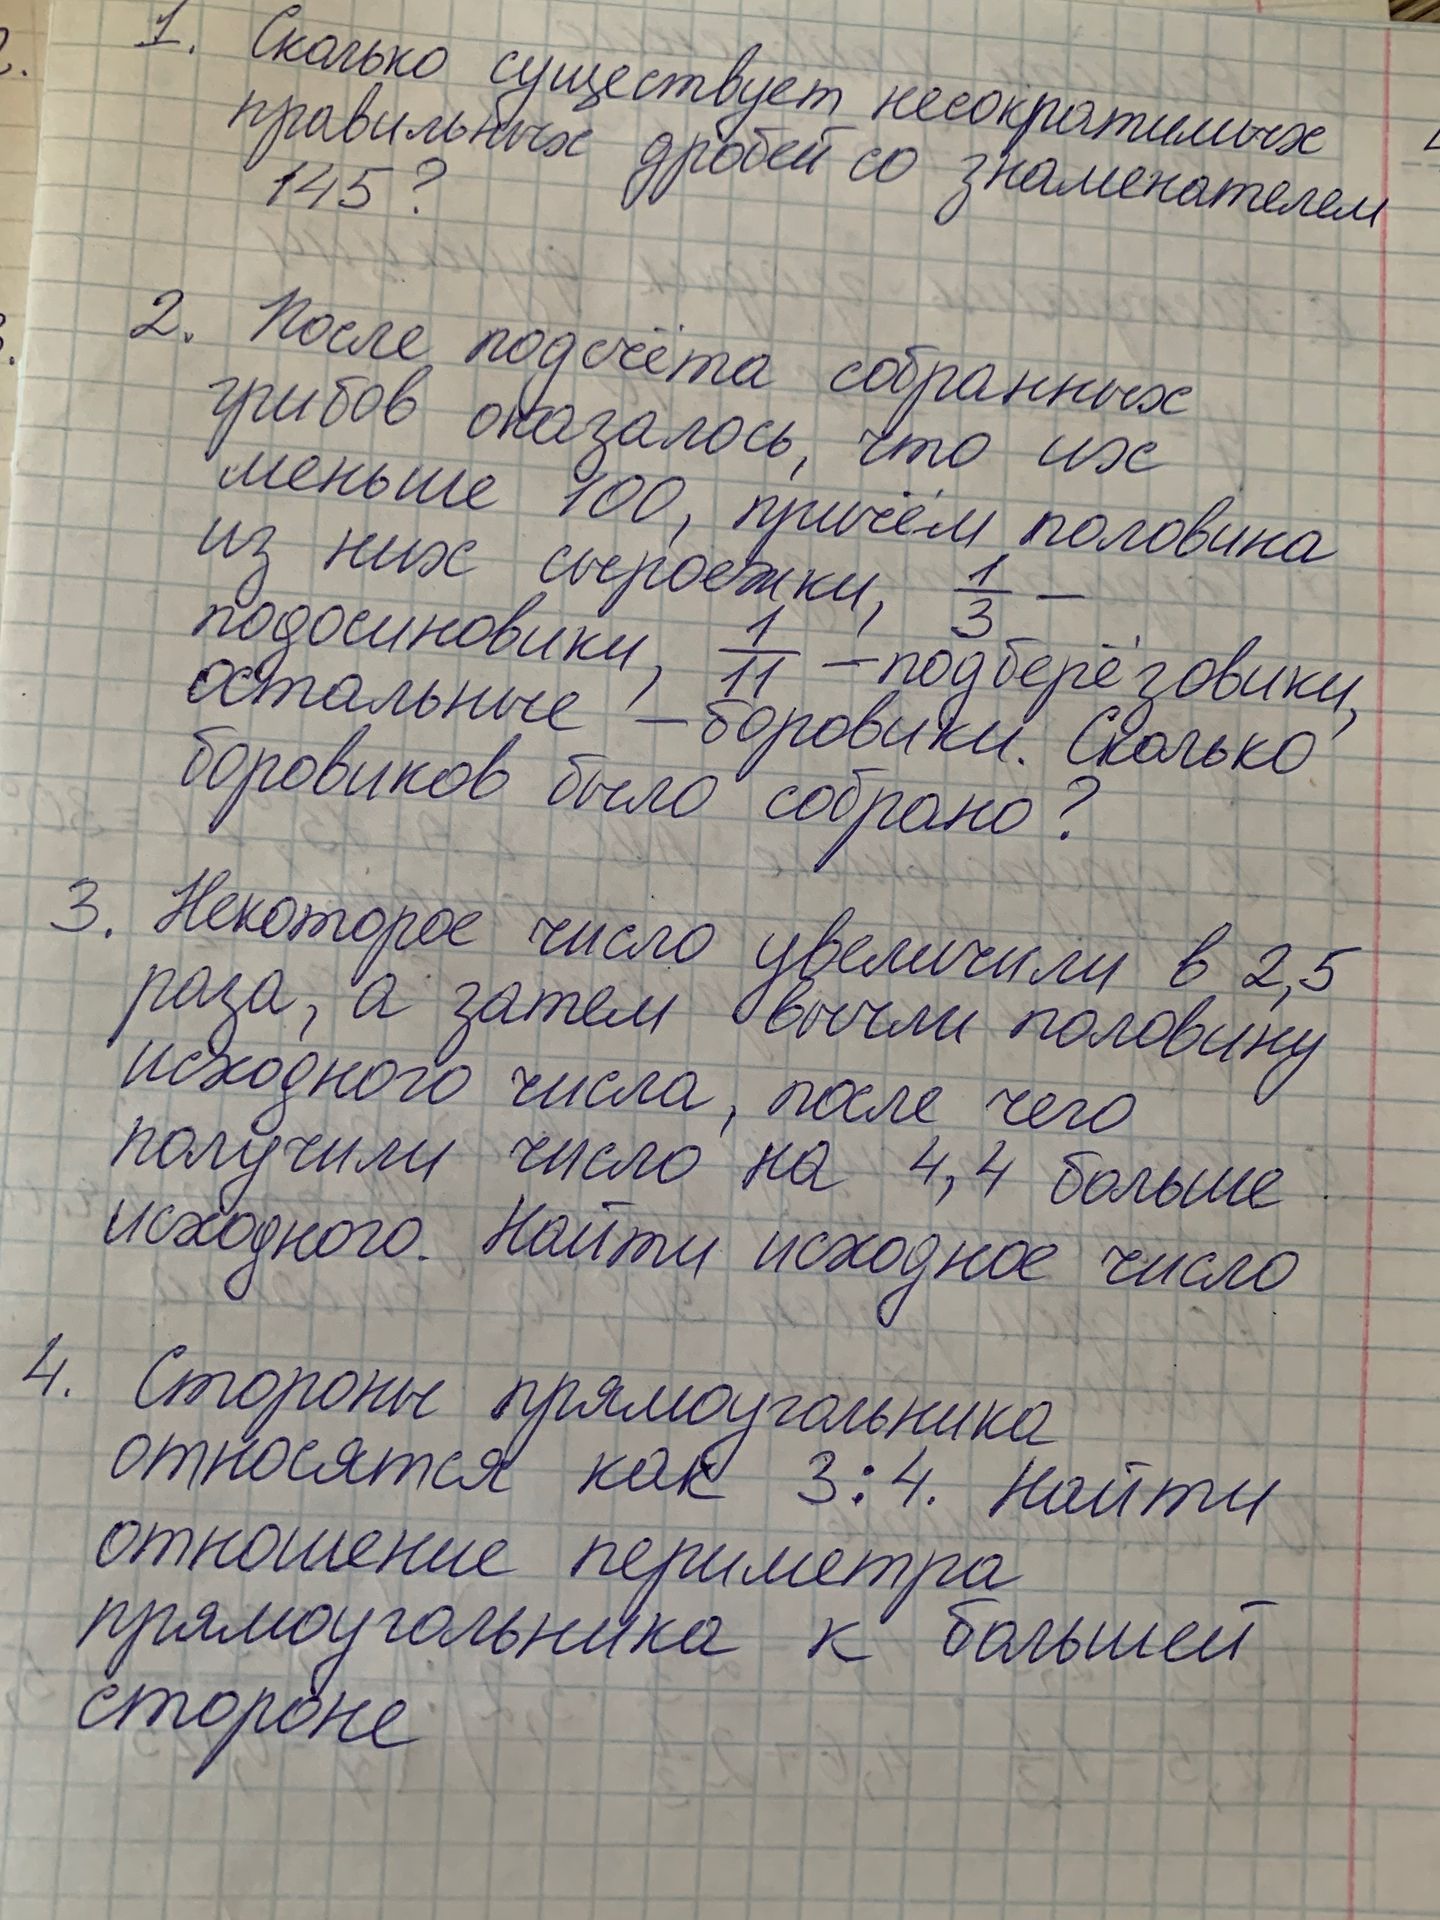 1. Сколько существует несократимых
правильных дробей со знаменателем
145?
2. После подсчёта собранных
грибов оказалось, что их
меньше 100, причём половина
из них сыроежки, 1/3 –
подосиновики, 1/11 – подберёзовики,
остальные – боровики. Сколько
боровиков было собрано?
3. Некоторое число увеличили в 2,5
раза, а затем вычли половину
исходного числа, после чего
получили число на 4,4 больше
исходного. Найти исходное число
4. Стороны прямоугольника
относятся как 3:4. Найти
отношение периметра
прямоугольника к большей
стороне